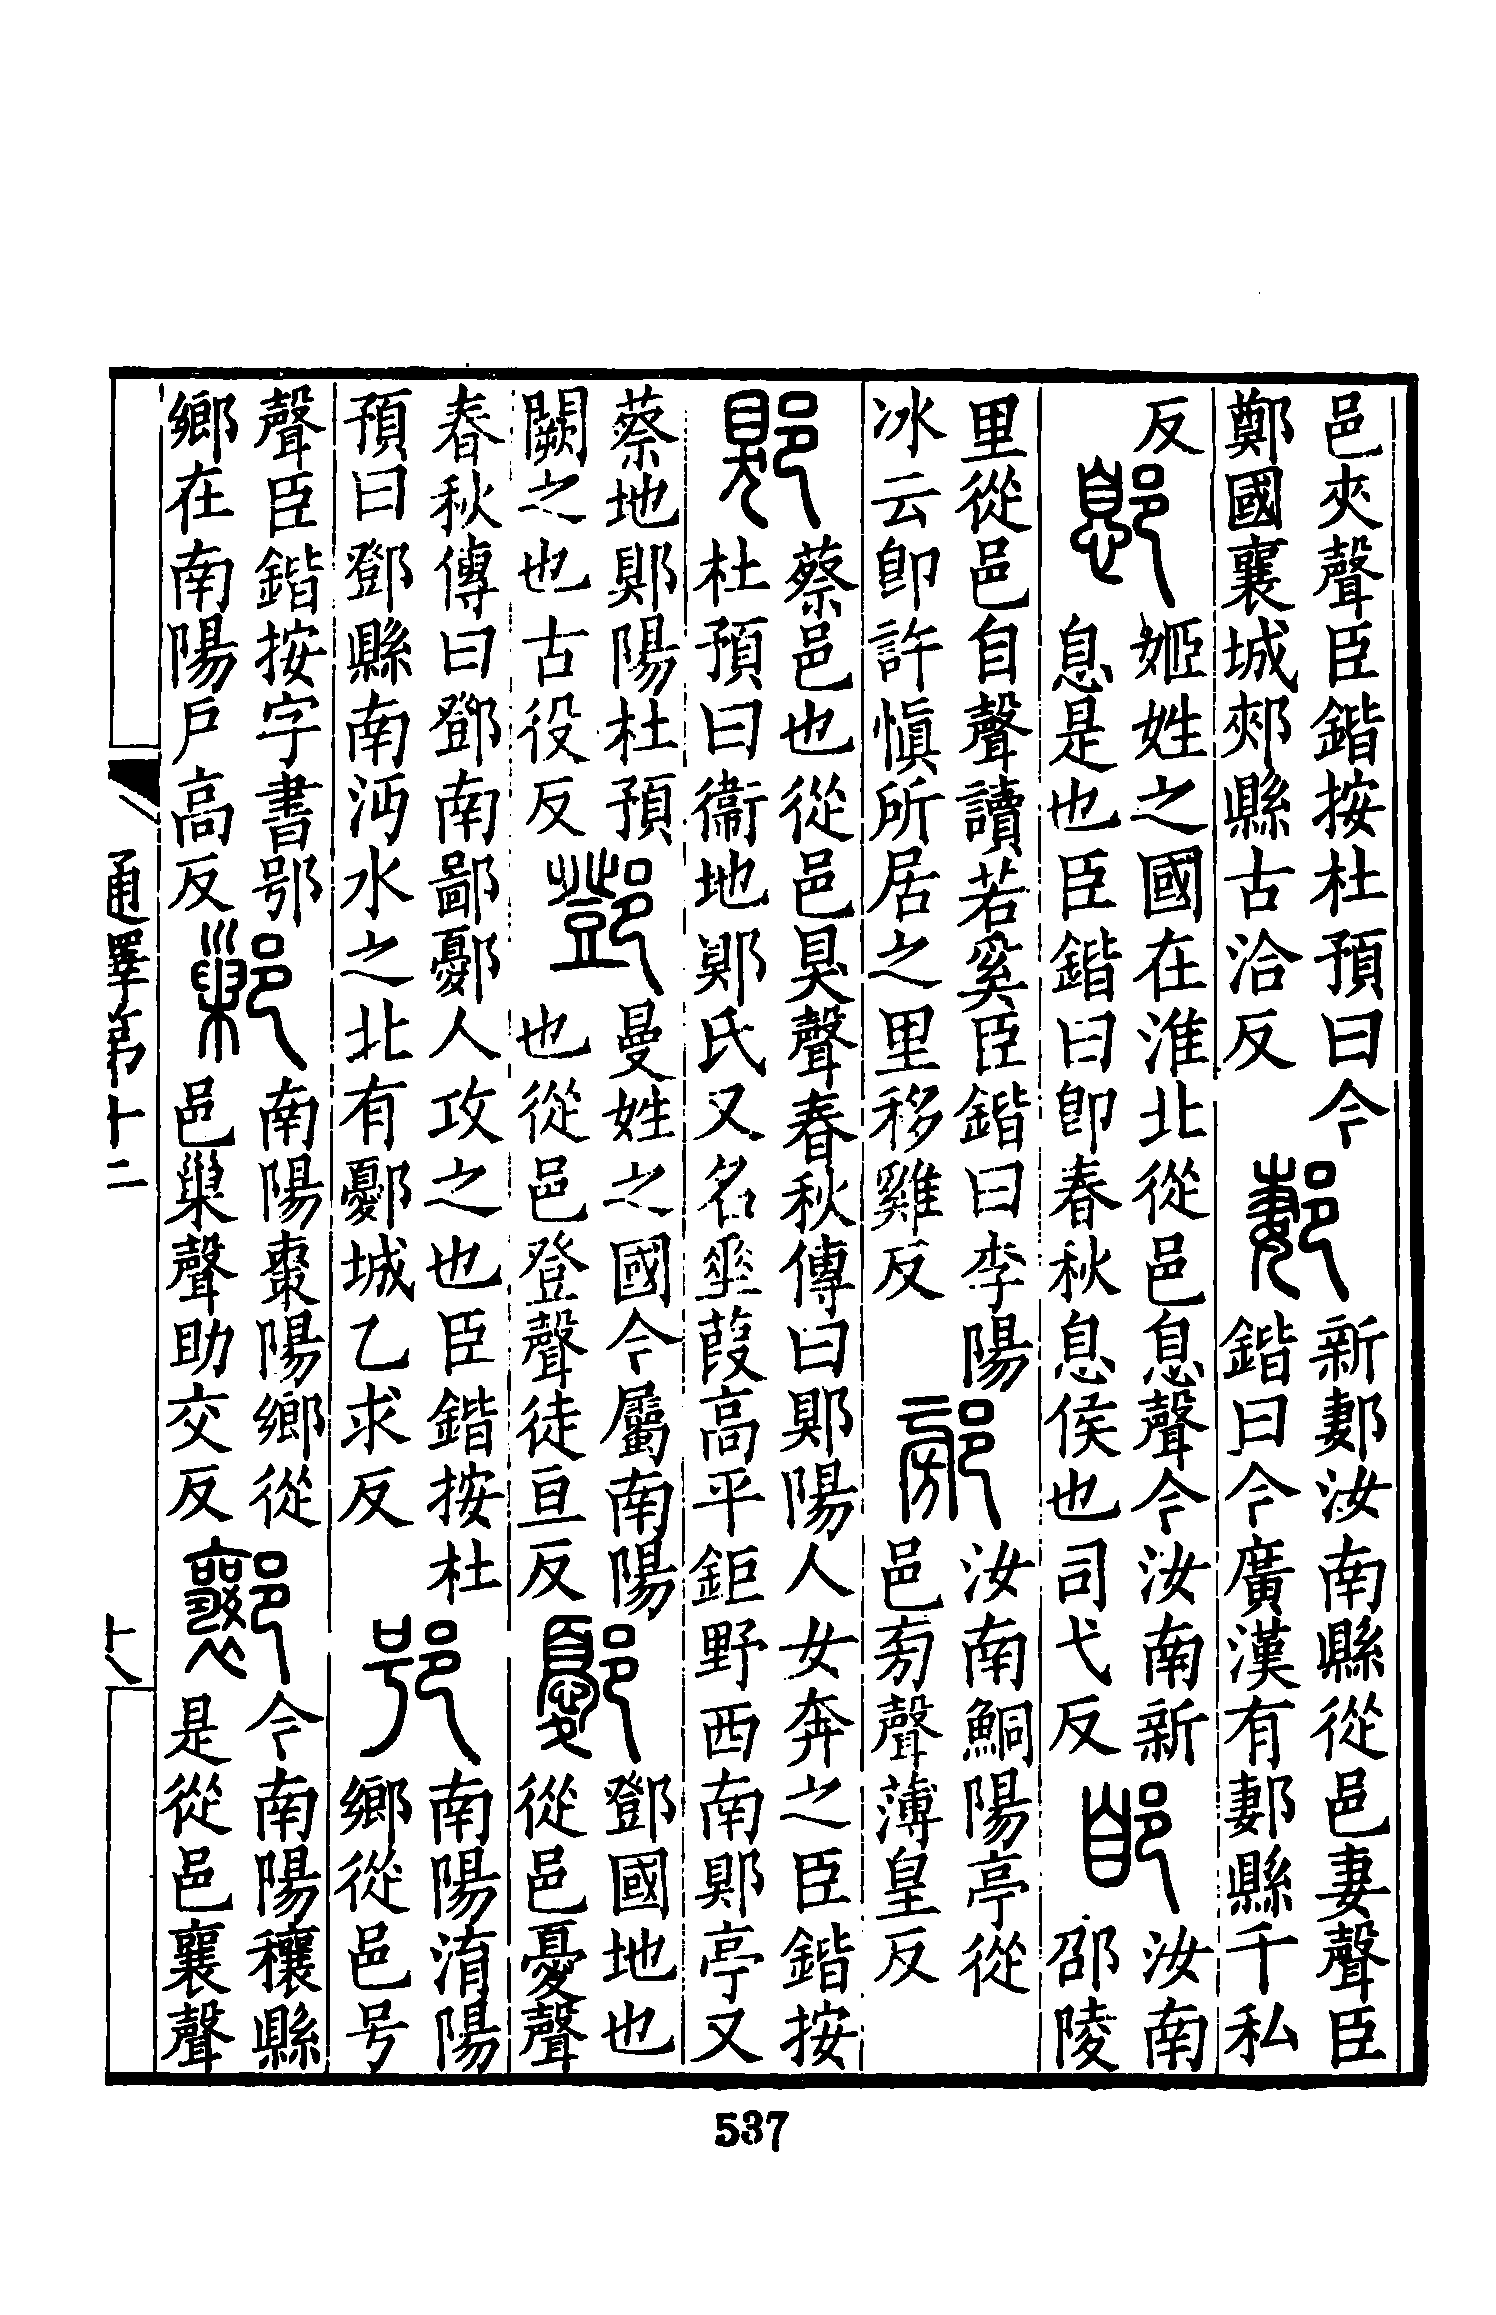 邑夾聲臣鍇按杜預曰今
鄭國襄城郟縣古洽反
郪
新郪汝南縣從邑妻聲臣
鍇曰今廣漢有郪縣千私
反
鄎
姬姓之國在淮北從邑息聲今汝南新
息是也臣鍇曰即春秋息侯也司弋反
郋
汝南
邵陵
里從邑自聲讀若奚臣鍇曰李陽
冰云即許慎所居之里移雞反
䣙
汝南鮦陽亭從
邑旁聲薄皇反
郹
蔡邑也從邑狊聲春秋傳曰郹陽人女奔之臣鍇按
杜預曰衞地郹氏又名垂葭高平鉅野西南郹亭又
蔡地郹陽杜預
闕之也古役反
鄧
曼姓之國今屬南陽
也從邑登聲徒亘反
鄾
鄧國地也
從邑憂聲
春秋傳曰鄧南鄙鄾人攻之也臣鍇按杜
預曰鄧縣南沔水之北有鄾城乙求反
南陽淯陽
鄉從邑号
聲臣鍇按字書
鄉在南陽戶高反
鄛
南陽棗陽鄉從
邑巢聲助交反
今南陽穰縣
是從邑襄聲
通釋第十二
十八
537